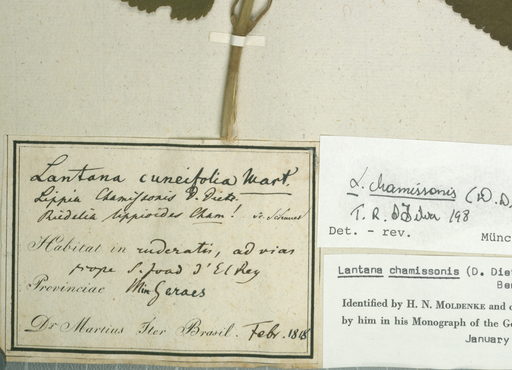 Lantana cuneifolia Mart.
Lippia Chamissonis D. Dietr.
Riedelia lippioides Cham!
Habitat in ruderatis, ad vias
prope S. Joaõ d'El Rey
Provinciae Min Geraes
Dr Martius Iter Brasil. Febr. 1818
L. chamissonis (D. D
T. R. S. Silva 198
Det. - rev. Münc
Lantana chamissonis (D. Diet
Ben
Identified by H. N. MOLDENKE and c
by him in his Monograph of the Ge
January